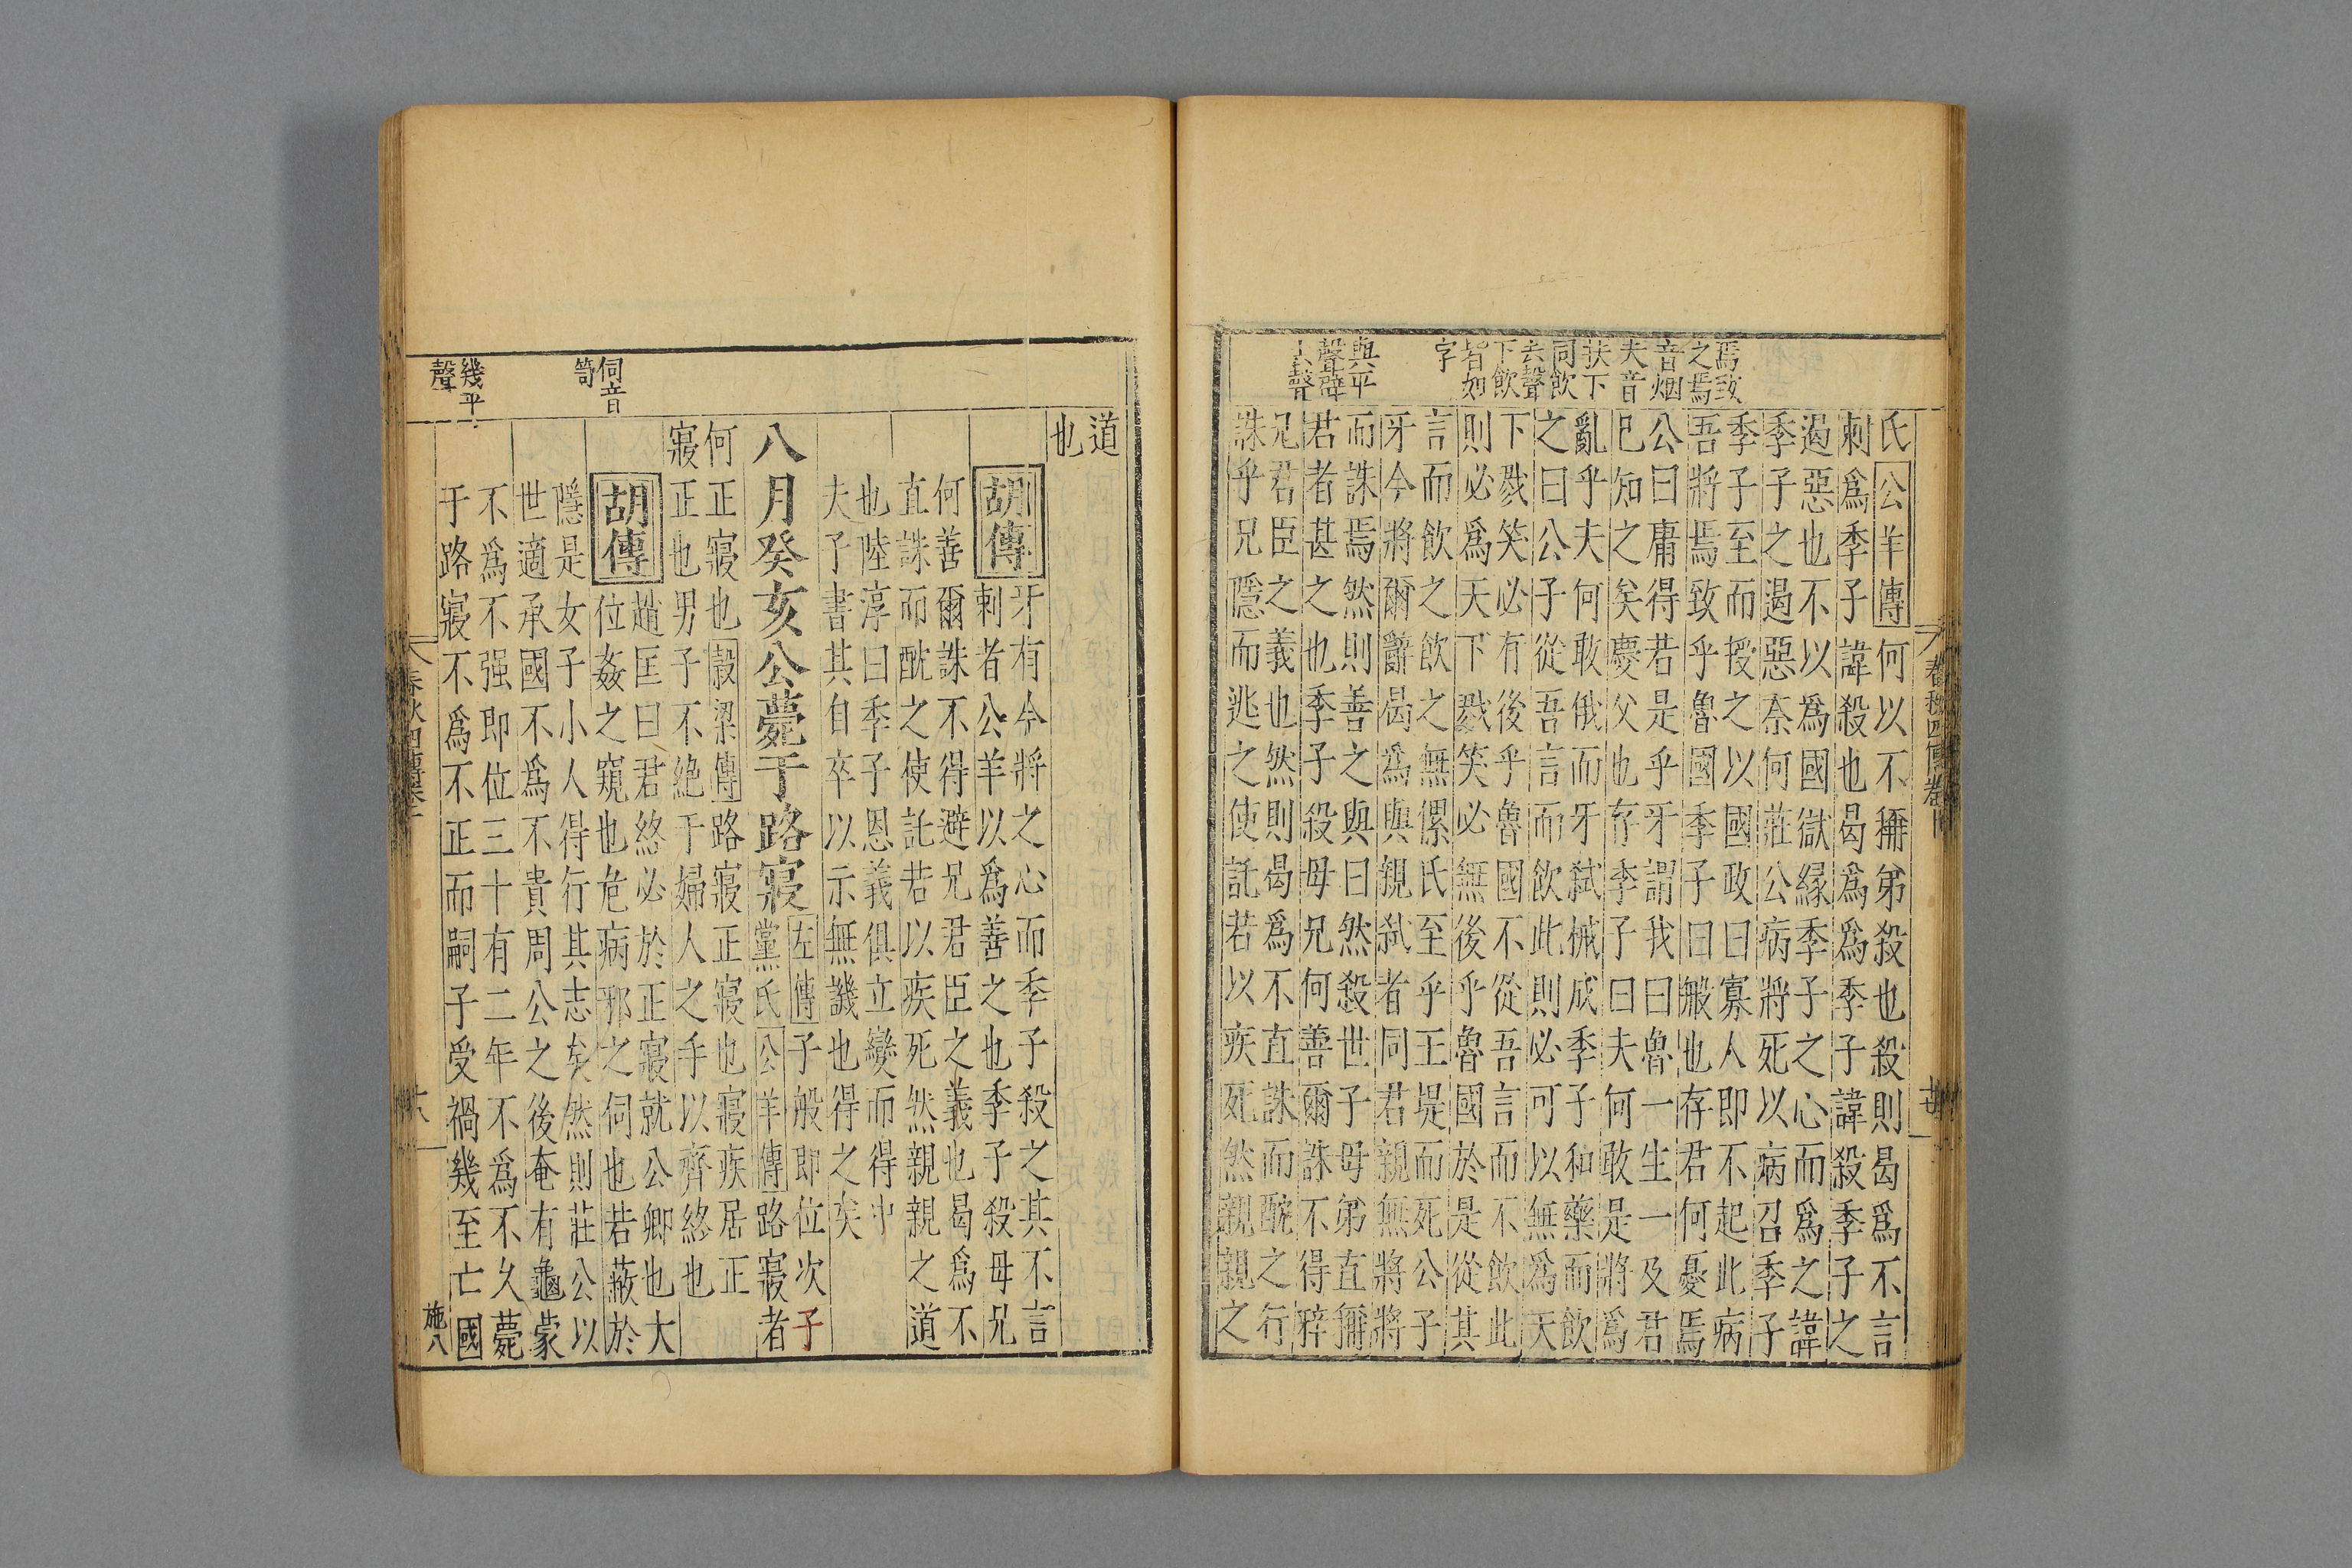 春秋四傳卷
焉致
之焉
音烟
夫音
扶下
同飲
去聲
下飲
皆如
字
與平
聲辟
去聲
氏公羊傳何以不稱弟殺也殺則曷爲不言
刺爲季子諱殺也曷爲爲季子諱殺季子之
遏惡也不以爲國獄緣季子之心而爲之諱
季子之遏惡奈何莊公病將死以病召季子
季子至而授之以國政曰寡人即不起此病
吾將焉致乎魯國季子曰般也存君何憂焉
公曰庸得若是乎牙謂我曰魯一生一及君
已知之矣慶父也存季子曰夫何敢是將爲
亂乎夫何敢俄而牙弑械成季子和藥而飲
之曰公子從吾言而飲此則必可以無爲天
下戮笑必有後乎魯國不從吾言而不飲此
則必爲天下戮笑必無後乎魯國於是從其
言而飲之飲之無傫氏至乎王堤而死公子
牙今將爾辭曷爲與親弑者同君親無將將
而誅焉然則善之與曰然殺世子母弟直稱
君者甚之也季子殺母兄何善爾誅不得辟
兄君臣之義也然則曷爲不直誅而酖之行
誅乎兄隱而逃之使託若以疾死然親親之
伺音
笥
幾平
聲
道
也
胡傳
牙有今將之心而季子殺之其不言
刺者公羊以爲善之也季子殺母兄
何善爾誅不得避兄君臣之義也曷爲不
直誅而酖之使託若以疾死然親親之道
也陸淳曰季子恩義俱立變而得中
夫子書其自卒以示無譏也得之矣
八月癸亥公薨于路寢
左傳子般即位次子
黨氏公羊傳路寢者
何正寢也穀梁傳路寢正寢也寢疾居正
寢正也男子不絶于婦人之手以齊終也
胡傳
趙匡曰君終必於正寢就公卿也大
位姦之窺也危病邪之伺也若蔽於
隱是女子小人得行其志矣然則莊公以
世適承國不爲不貴周公之後奄有龜蒙
不爲不强即位三十有二年不爲不久薨
于路寢不爲不正而嗣子受禍幾至亡國
施八